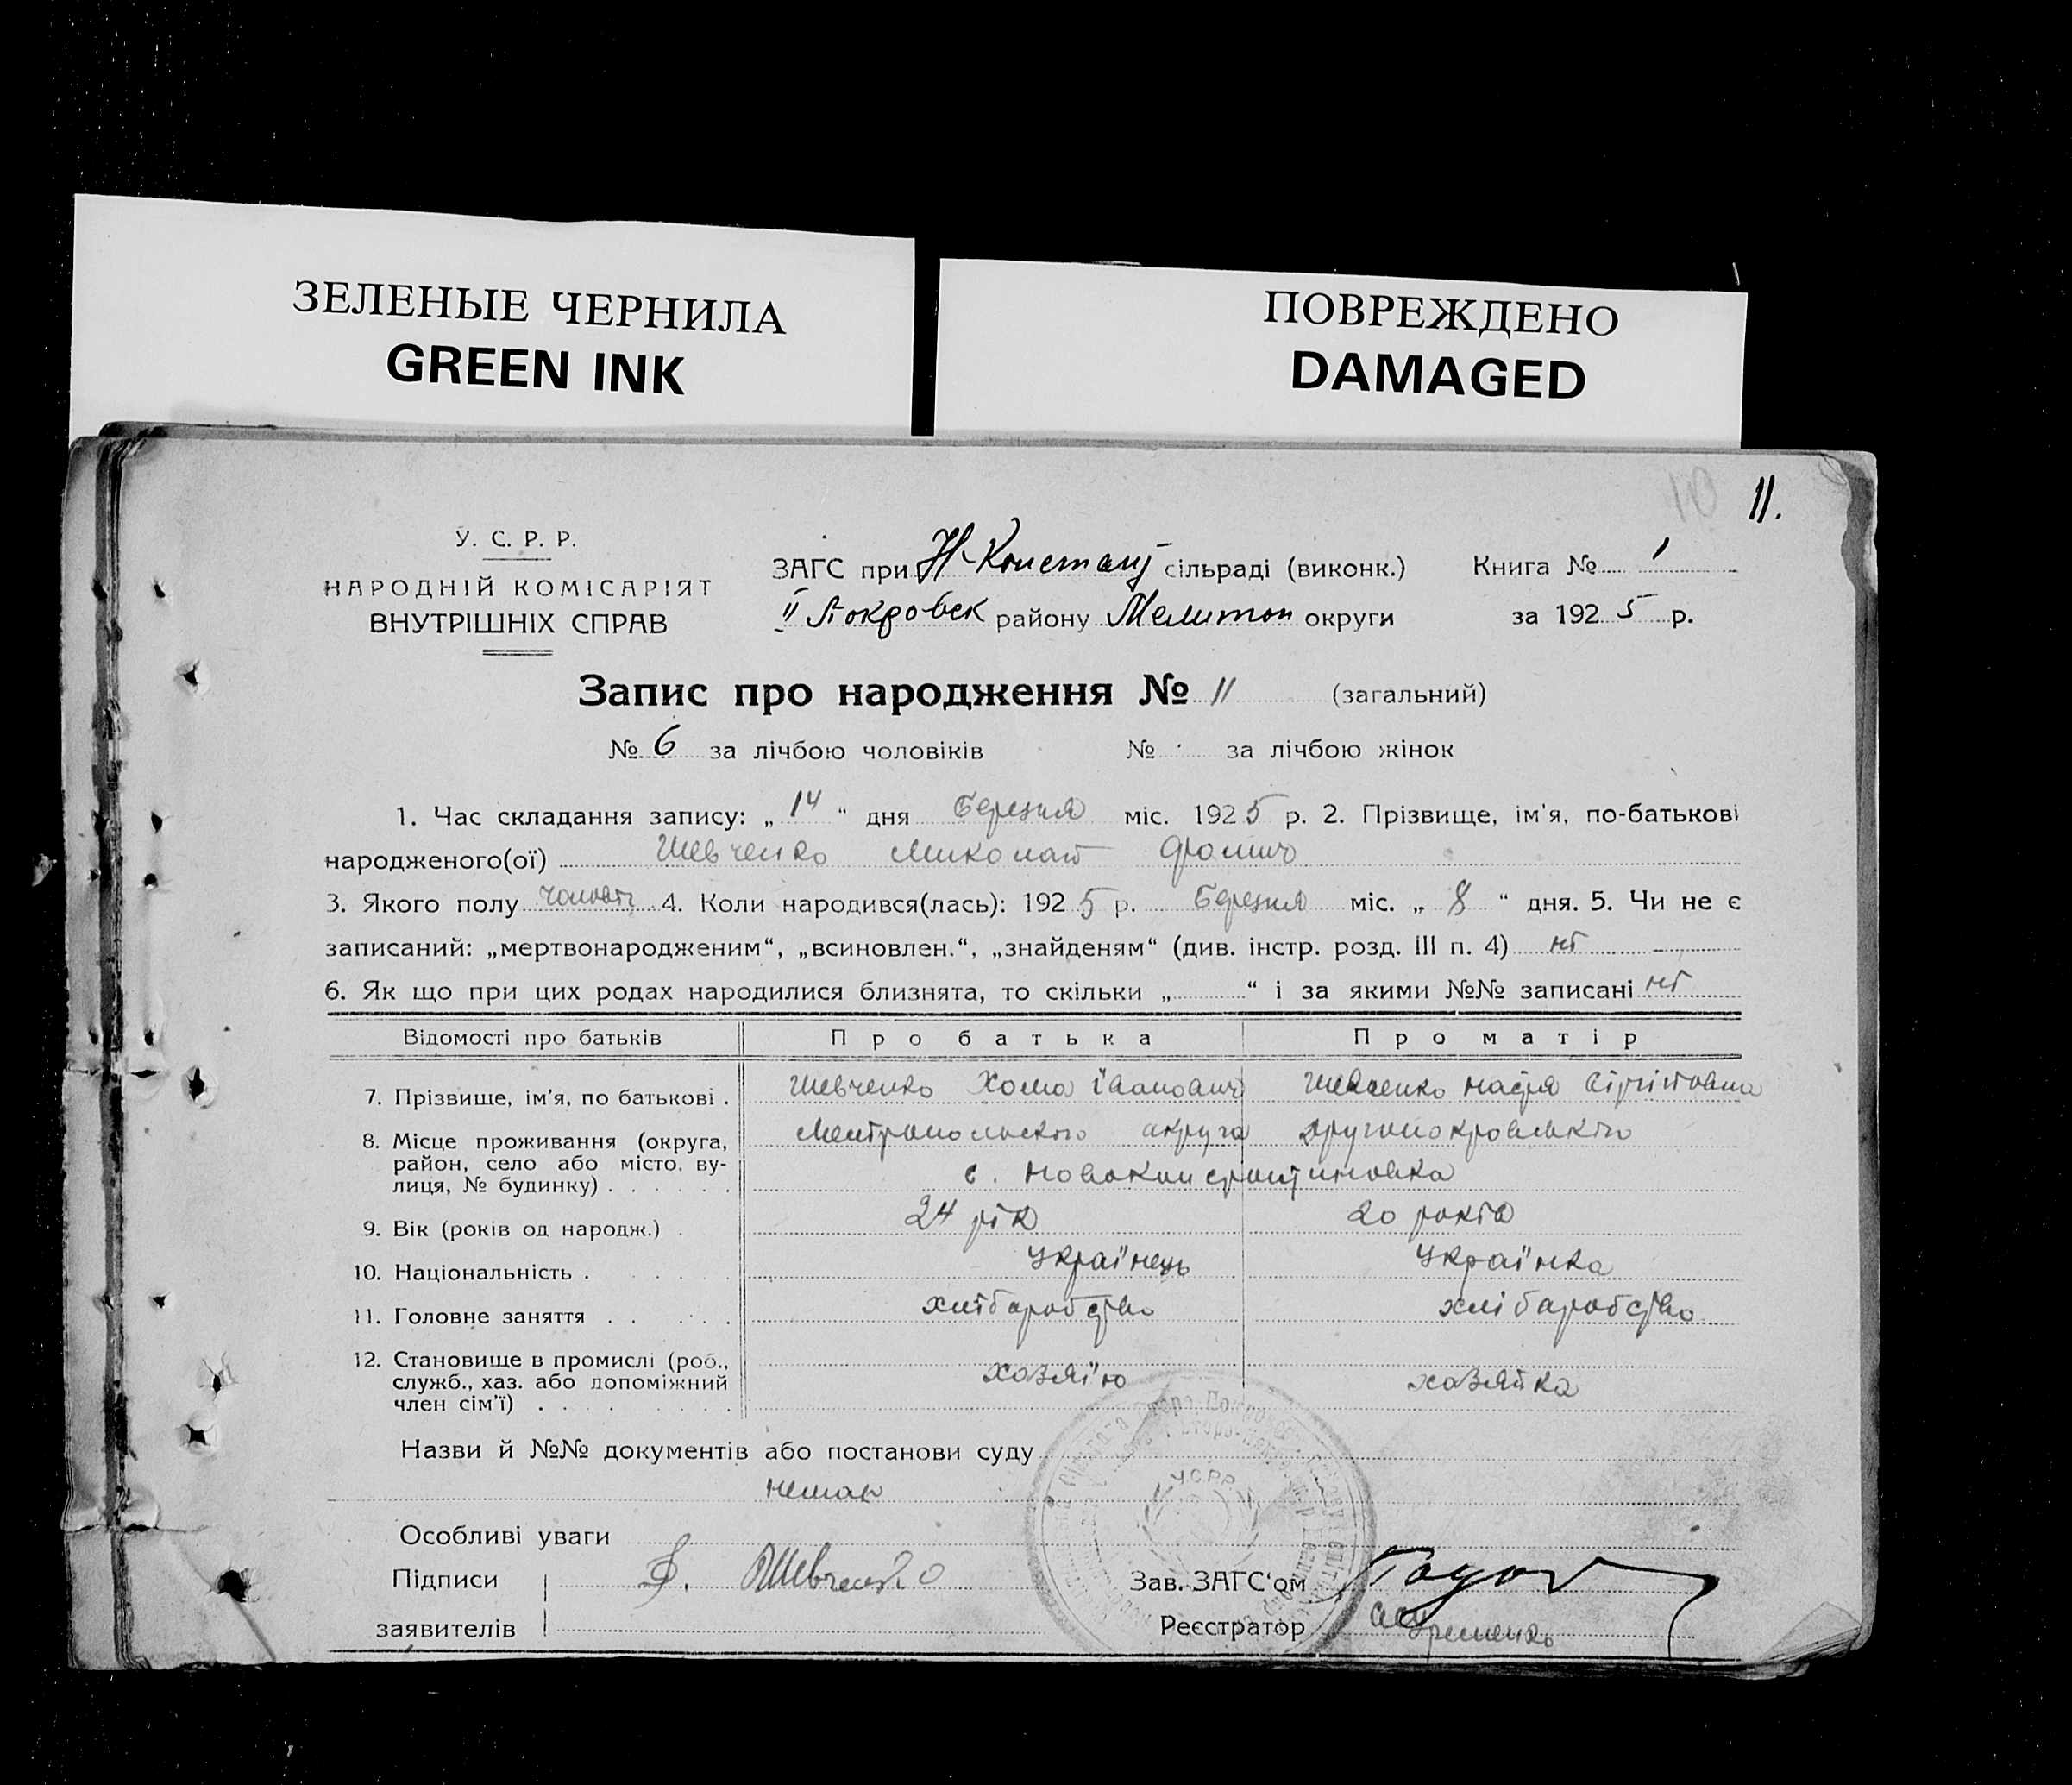 ЗЕЛЕНЫЕ ЧЕРНИЛА
GREEN INK
ПОВРЕЖДЕНО
DAMAGED
10 11.
У. С. Р. Р.
НАРОДНІЙ КОМІСАРІЯТ
ВНУТРІШНІХ СПРАВ
ЗАГС при Н-Констант сільраді (виконк.)
II Покровськ району Мелитоп округи
Книга № 1
за 1925 р.
Запис про народження № 11 (загальний)
№ 6 за лічбою чоловіків № за лічбою жінок
1. Час складання запису: „ 14 “ дня Березня міс. 1925 р. 2. Прізвище, ім'я, по-батькові
народженого(ої) Шевченко Миколай Фомич
3. Якого полу чоловіч 4. Коли народився(лась): 1925 р. Березня міс. „ 8 “ дня. 5. Чи не є
записаний: „мертвонародженим“, „всиновлен.“, „знайденям“ (див. інстр. розд. III п. 4) ні
6. Як що при цих родах народилися близнята, то скільки „ “ і за якими №№ записані ні
Відомості про батьків Про батька Про матір
7. Прізвище, ім'я, по батькові . Шевченко Хома Іванович Шевченко
8. Місце проживання (округа, район, село або місто, вулиця, № будинку) . . . . . . Мелітопольского округа Другопокровського
с. Новоконстантиновка
9. Вік (років од народж.) . 24 рік 20 років
10. Національність . Українець Українка
11. Головне заняття . . хліборобство хліборобство
12. Становище в промислі (роб., служб., хаз. або допоміжний член сім'ї) . хозяїн хозяйка
Назви й №№ документів або постанови суду
немає
Особливі уваги
Підписи Ф. Шевченко
заявителів
Зав. ЗАГС'ом
Реєстратор
УСРР